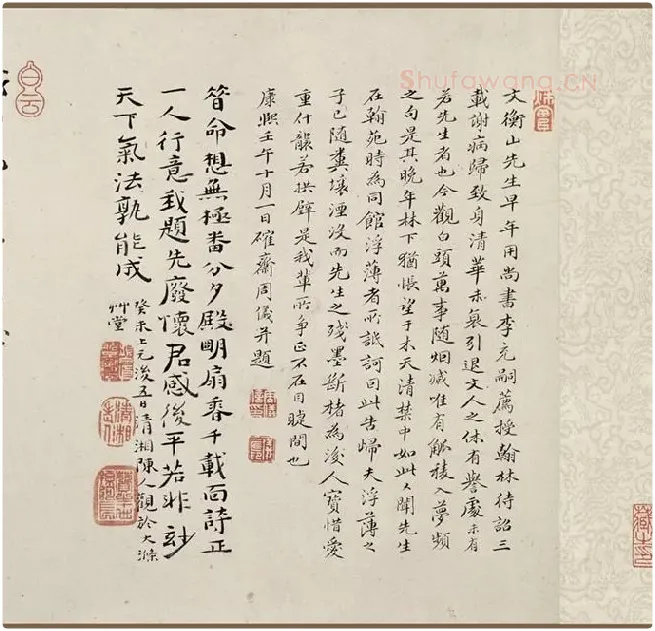 Shufawang.CN
文衡山先生早年用尚書李充嗣薦授翰林待詔三
載謝病歸致身清華未衰引退文人之休有譽處未有
若先生者也今觀白頭萬事随烟滅唯有觚稜入夢頻
之句是其晚年林下猶悵望于木天清禁中如此々聞先生
在翰苑時為同館浮薄者所詆訶曰此告歸夫浮薄之
子已随糞壤湮没而先生之残墨斷楮為後人寳惜愛
重什襲若拱璧是我輩所争正不在目睫間也
康熙壬午十月一日確齋周儀并題
命想無極番分夕殿明扇千載面詩正
一人行意我題先廢懷君感後平若非妙
天下氣法孰能成
癸未上元後五日清湘陳人觀於大滌
艸堂
白云